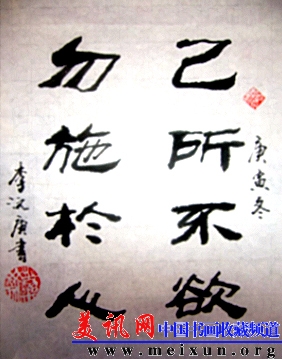 己所不欲
勿施於人
庚寅冬
李沈庚書
美讯网
中国书画收藏频道
www.meixun.org